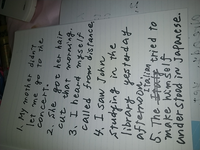 1. My mother didn't
let me go to the
concert.
2. She got her hair
cut that morning.
3. I heard myself
called from distance.
4. I saw John
studying in the
library yesterday
afternoon.
5. Italian tried to
make himself
understand in Japanese.